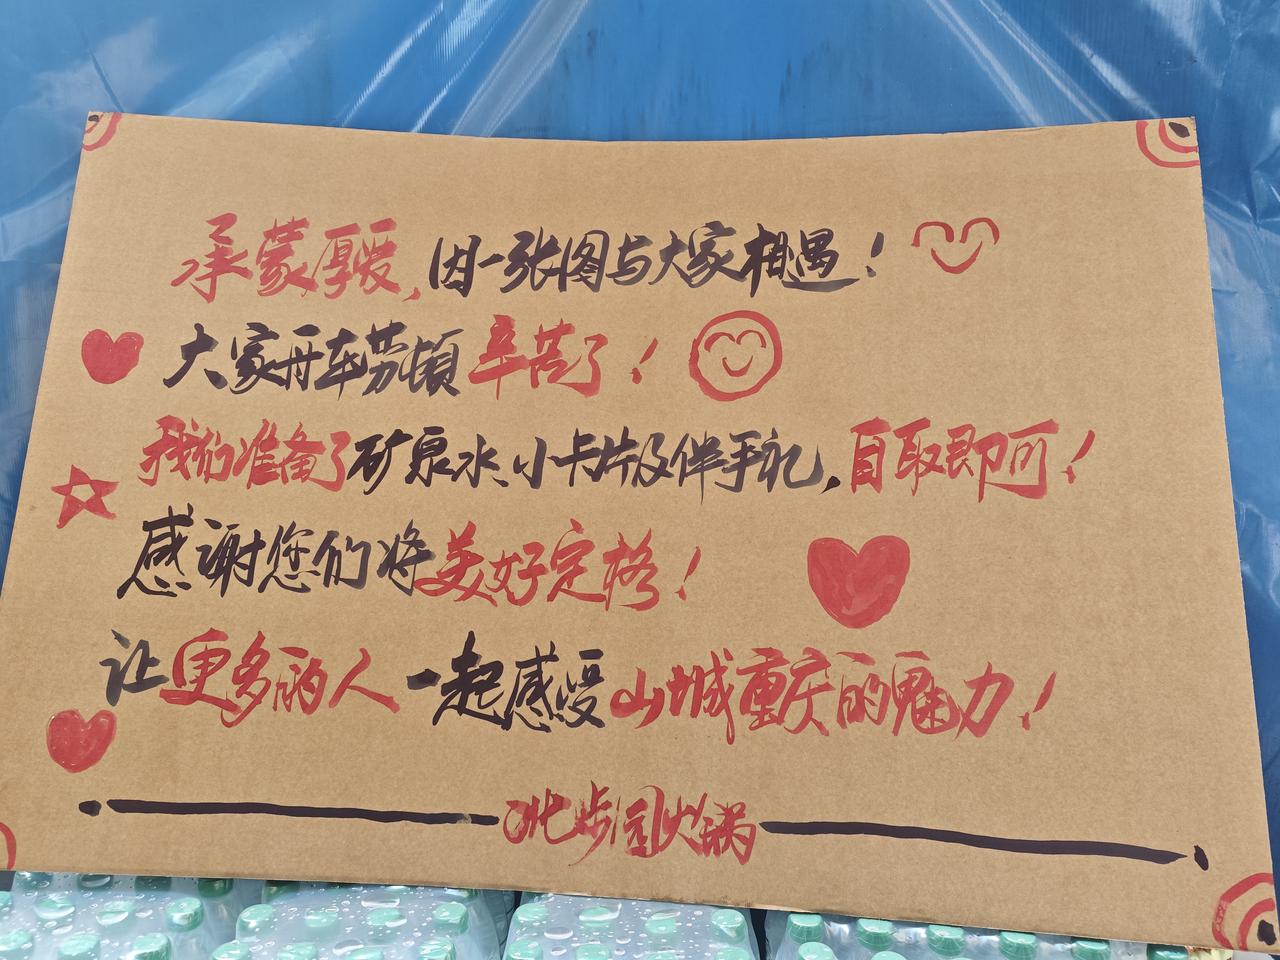 承蒙厚爱,因一张图与大家相遇!
大家舟车劳顿辛苦了!
我们准备了矿泉水、小卡片及伴手礼,自取即可!
感谢您们将美好定格!
让更多的人一起感受山城重庆的魅力!
火锅